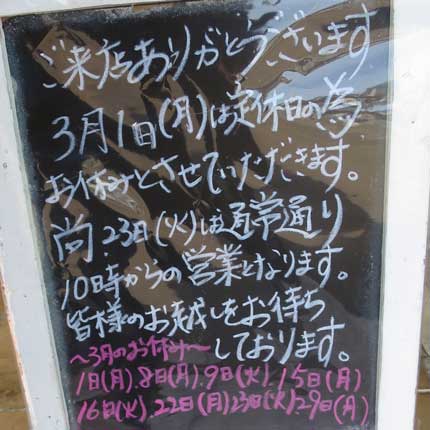 ご来店ありがとうございます
3月1日(月)は定休日の為
お休みとさせていただきます。
尚、23日(火)は通常通り
10時からの営業となります。
皆様のお越しをお待ち
しております。
〜3月のお休み〜
1日(月).8日(月).9日(火)15日(月)
16日(火).22日(月)23日(火).29日(月)